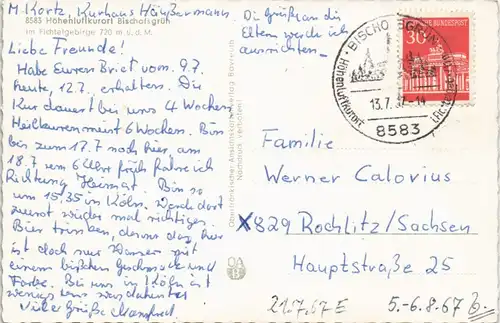 M. Kortz, Kurhaus Häußermann.
8583 Höhenluftkurort Bischofsgrün
im Fichtelgebirge 720 m ü. d. M.
Liebe Freunde!
Habe Euren Brief vom 9.7.
heute, 12.7. erhalten. Die
Kur dauert bei uns 4 Wochen
6 Wochen. Bin
bis zum 17.7 noch hier, am
18.7 um 6 Uhr früh fahre ich
Richtung Heimat. Bin so
um 15,35 in Köln. Werde dort
zuerst wieder mal richtiges
Bier trinken, denn das hier
ist doch nur Wasser mit
einem bißchen Geschmack und
Farbe. Bei uns in Köln ist
wenigstens was dahinter
Viele Grüße Manfred
Die Grüße an die
Eltern werde ich
ausrichten.
Oberfränkischer Ansichtskartenverlag Bayreuth
Nachdruck verboten!
DEUTSCHE BUNDESPOST
30
BISCHOFSGRÜN
Höhenluftkurort
13.7.67-14
8583
Familie
Werner Calovius
X829 Rochlitz/Sachsen
Hauptstraße 25
21.7.67 E
5.-6.8.67 B.